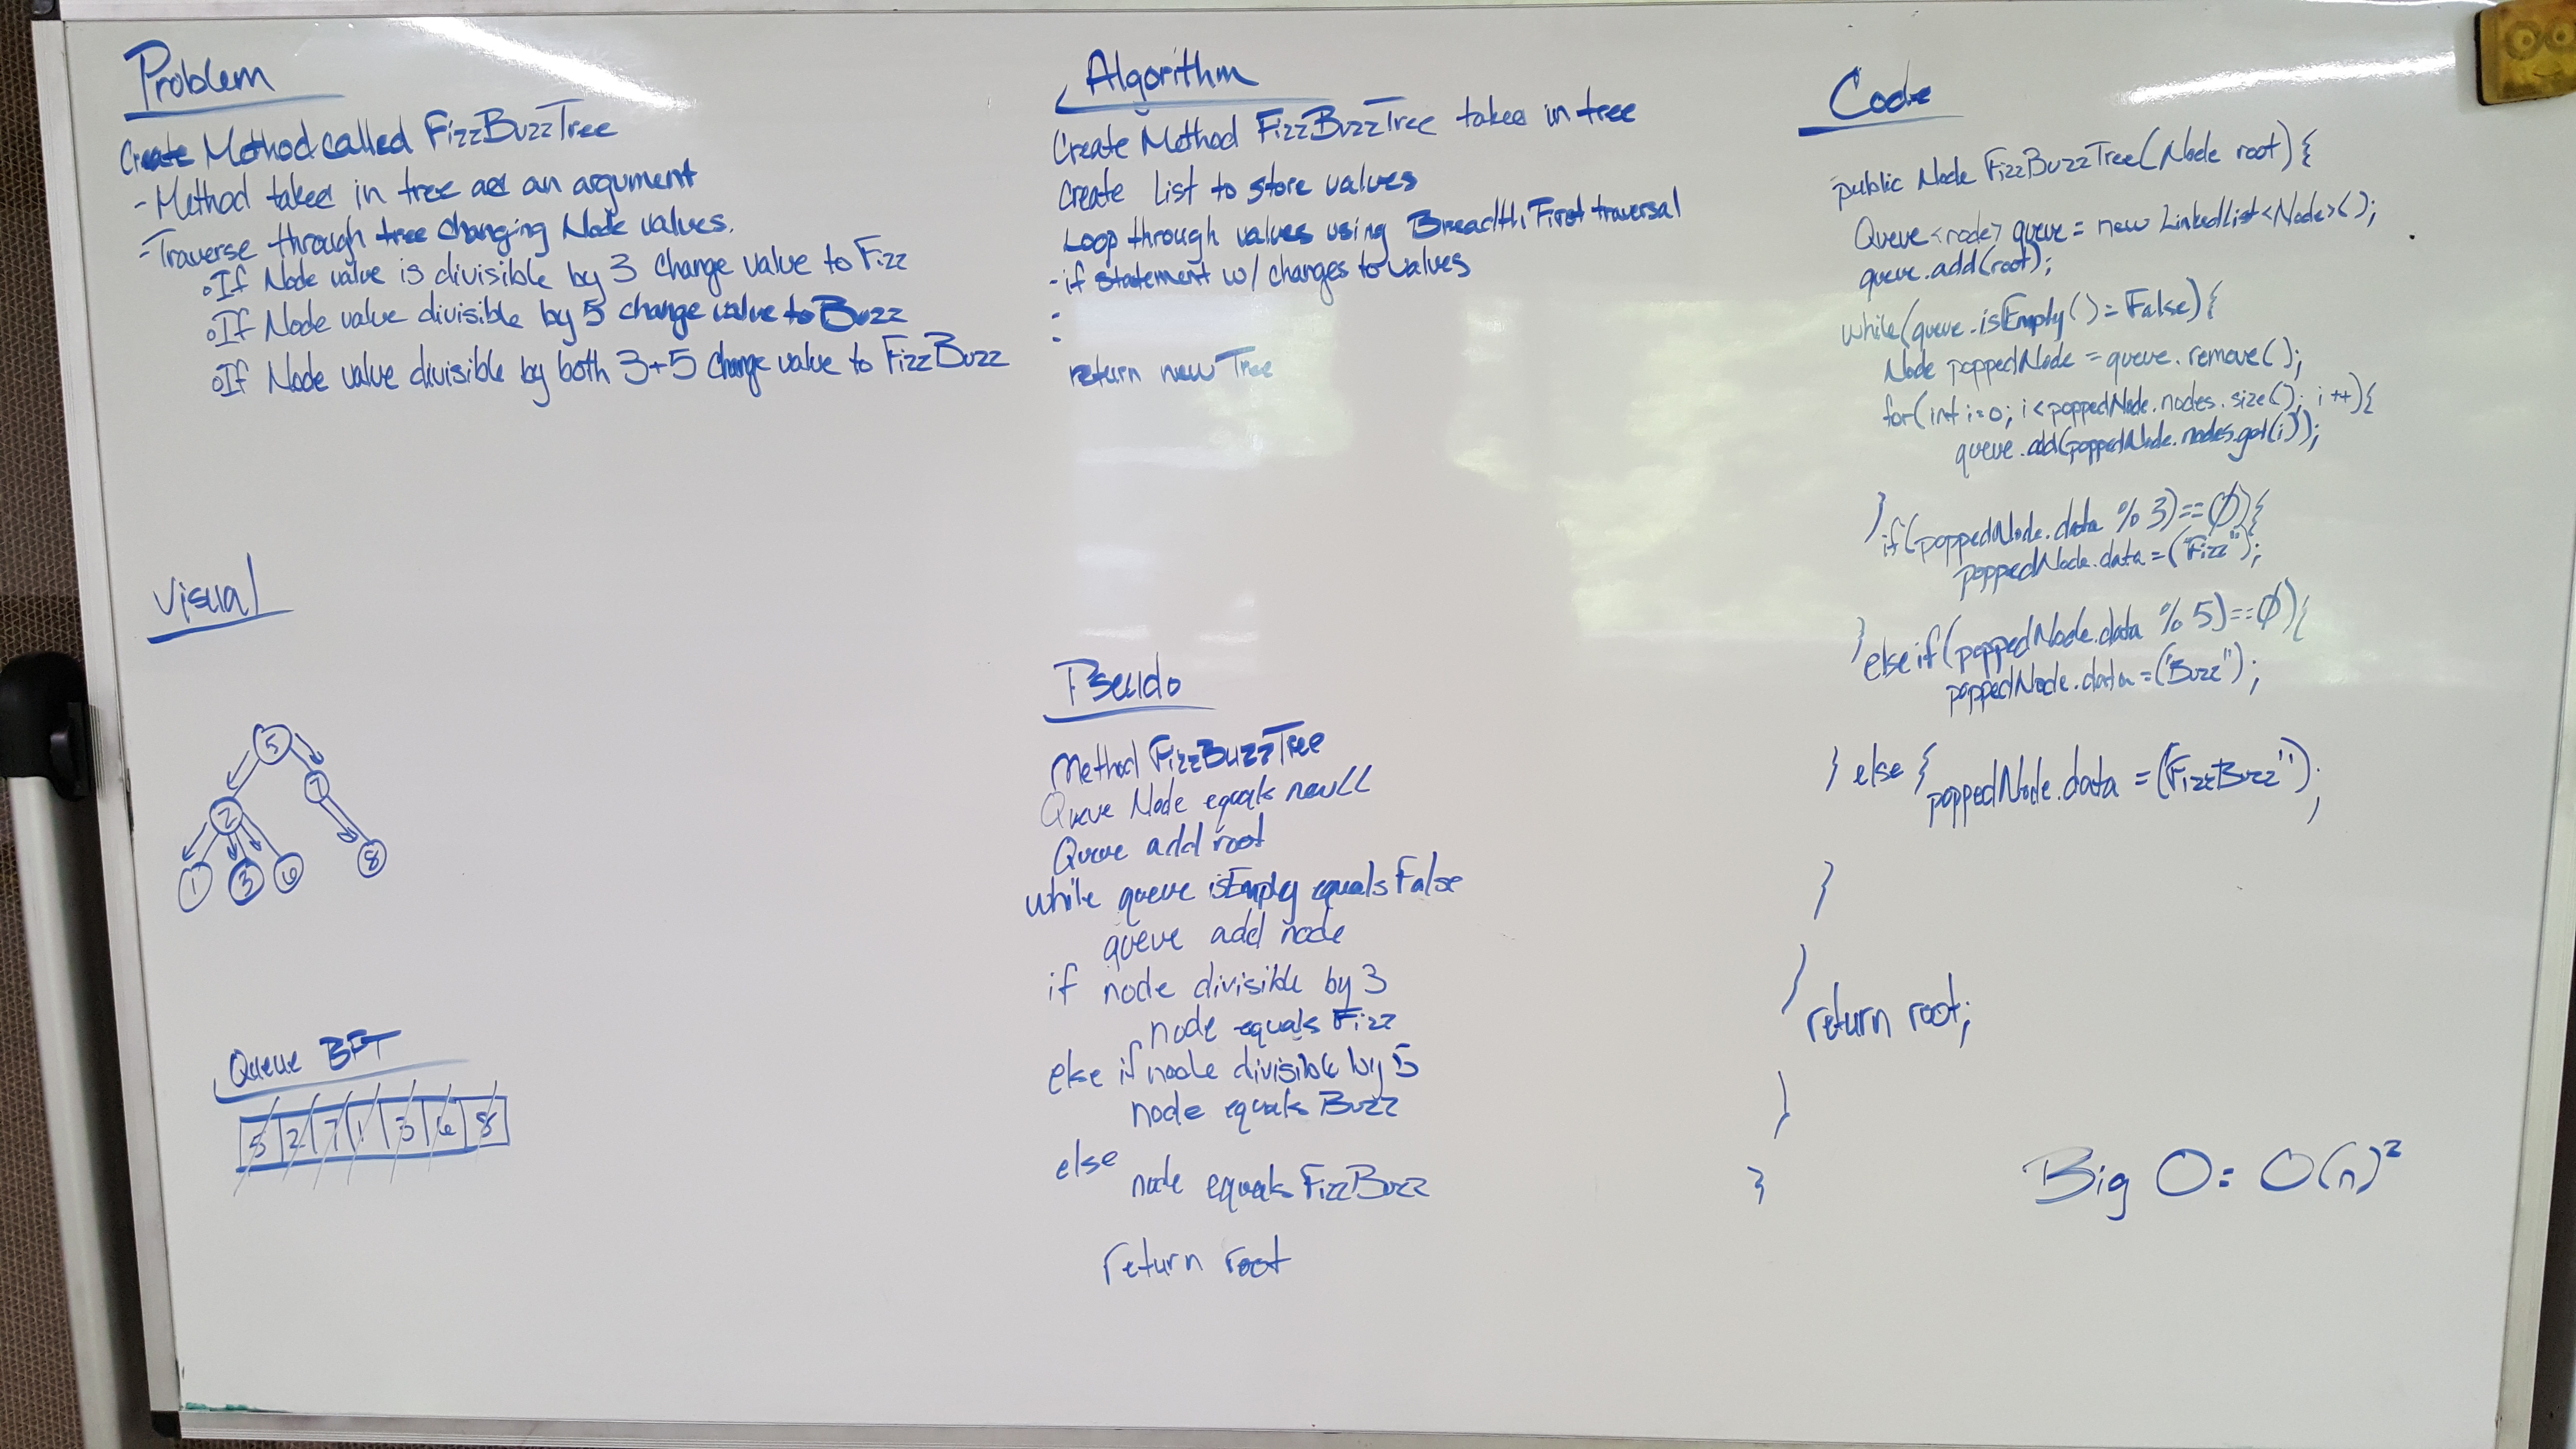 Problem
Create Method called FizzBuzzTree
- Method takes in tree as an argument
- Traverse through tree changing Node values.
o If Node value is divisible by 3 change value to Fizz
o If Node value divisible by 5 change value to Buzz
o If Node value divisible by both 3+5 change value to FizzBuzz
Visual
5
2 7
1 3 6 8
Queue BFT
5 2 7 1 3 6 8
Algorithm
Create Method FizzBuzzTree takes in tree
Create List to store values
Loop through values using Breadth First traversal
- if statement w/ changes to values
-
-
return new Tree
Pseudo
Method FizzBuzzTree
Queue Node equals new LL
Queue add root
while queue isEmpty equals False
queue add node
if node divisible by 3
node equals Fizz
else if node divisible by 5
node equals Buzz
else
node equals FizzBuzz
return root
Code
public Node FizzBuzzTree(Node root){
Queue<node> queue = new LinkedList<Node>();
queue.add(root);
while(queue.isEmpty()=False){
Node poppedNode = queue.remove();
for(int i=0; i<poppedNode.nodes.size(); i++){
queue.add(poppedNode.nodes.get(i));
}
if(poppedNode.data % 3)==0){
poppedNode.data=("Fizz");
}else if(poppedNode.data % 5)==0){
poppedNode.data=("Buzz");
} else {
poppedNode.data = ("FizzBuzz");
}
}
return root;
}
}
Big O: O(n)²